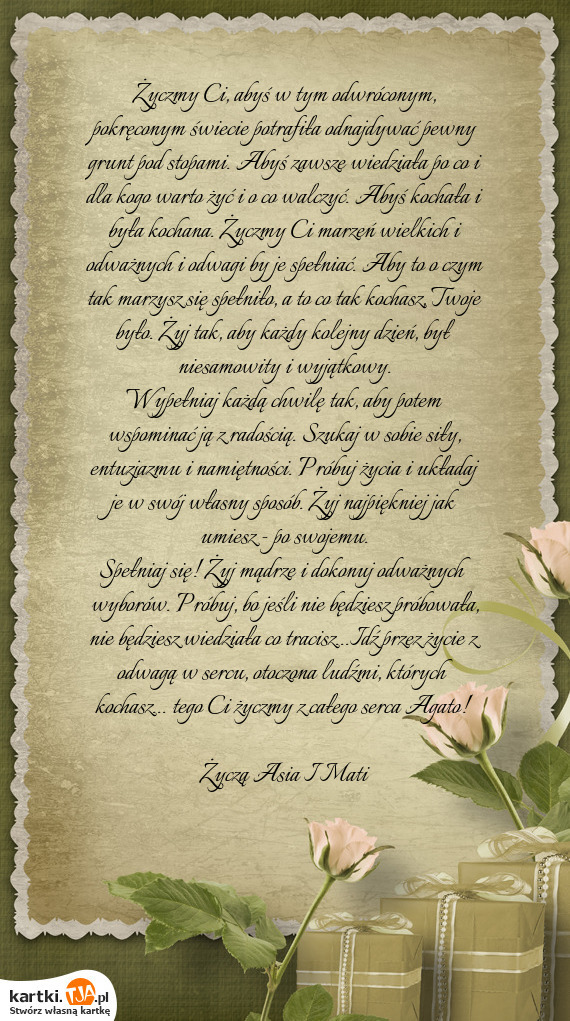 Życzmy Ci, abyś w tym odwróconym,
pokręconym świecie potrafiła odnajdywać pewny
grunt pod stopami. Abyś zawsze wiedziała po co i
dla kogo warto żyć i o co walczyć. Abyś kochała i
była kochana. Życzmy Ci marzeń wielkich i
odważnych i odwagi by je spełniać. Aby to o czym
tak marzysz się spełniło, a to co tak kochasz, Twoje
było. Żyj tak, aby każdy kolejny dzień, był
niesamowity i wyjątkowy.
Wypełniaj każdą chwilę tak, aby potem
wspominać ją z radością. Szukaj w sobie siły,
entuzjazmu i namiętności. Próbuj życia i układaj
je w swój własny sposób. Żyj najpiękniej jak
umiesz - po swojemu.
Spełniaj się! Żyj mądrze i dokonuj odważnych
wyborów. Próbuj, bo jeśli nie będziesz próbowała,
nie będziesz wiedziała co tracisz...Idź przez życie z
odwagą w sercu, otoczona ludźmi, których
kochasz... tego Ci życzmy z całego serca Agato!
Życzą Asia I Mati
kartki.TJA.pl
Stwórz własną kartkę